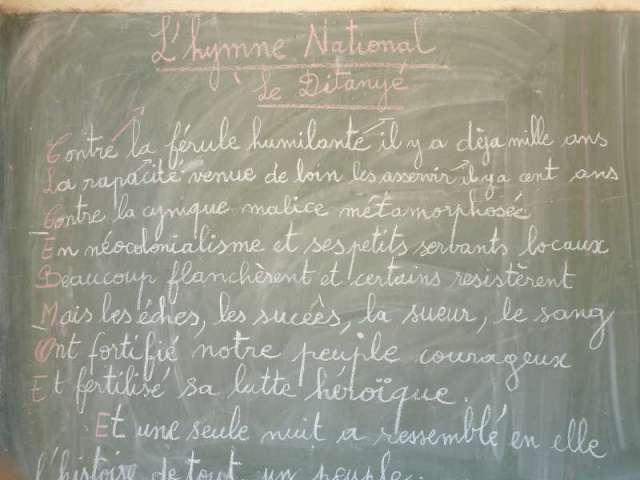 L'hymne National
Le Ditanyé
Contre la férule humilante il y a dèja mille ans
La rapacité venue de loin les asservir il y a cent ans
Contre la cynique malice métamorphosée
En néocolonialisme et ses petits servants locaux
Beaucoup flanchèrent et certains resistèrent
Mais les éches, les sucèès, la sueur, le sang
Ont fortifié notre peuple courageux
Et fertilisé sa lutte héroïque.
Et une seule nuit a ressemblé en elle
l'histoire de tout un peuple.